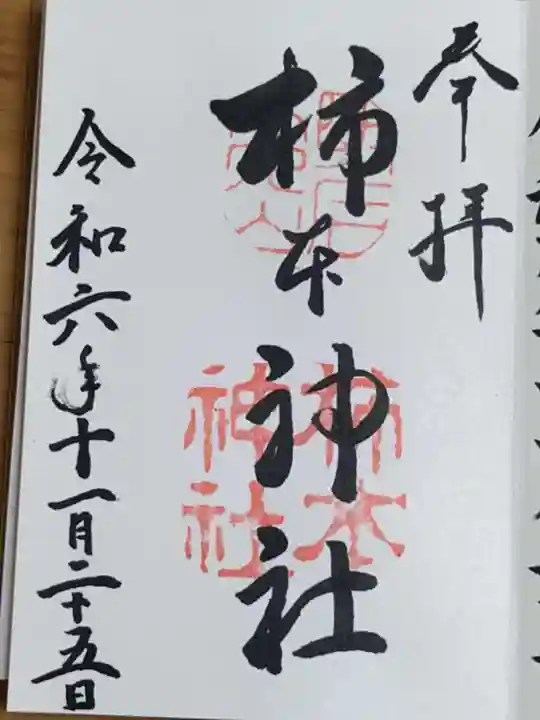 奉拝
柿本神社
柿本
神社
令和六年十一月二十五日